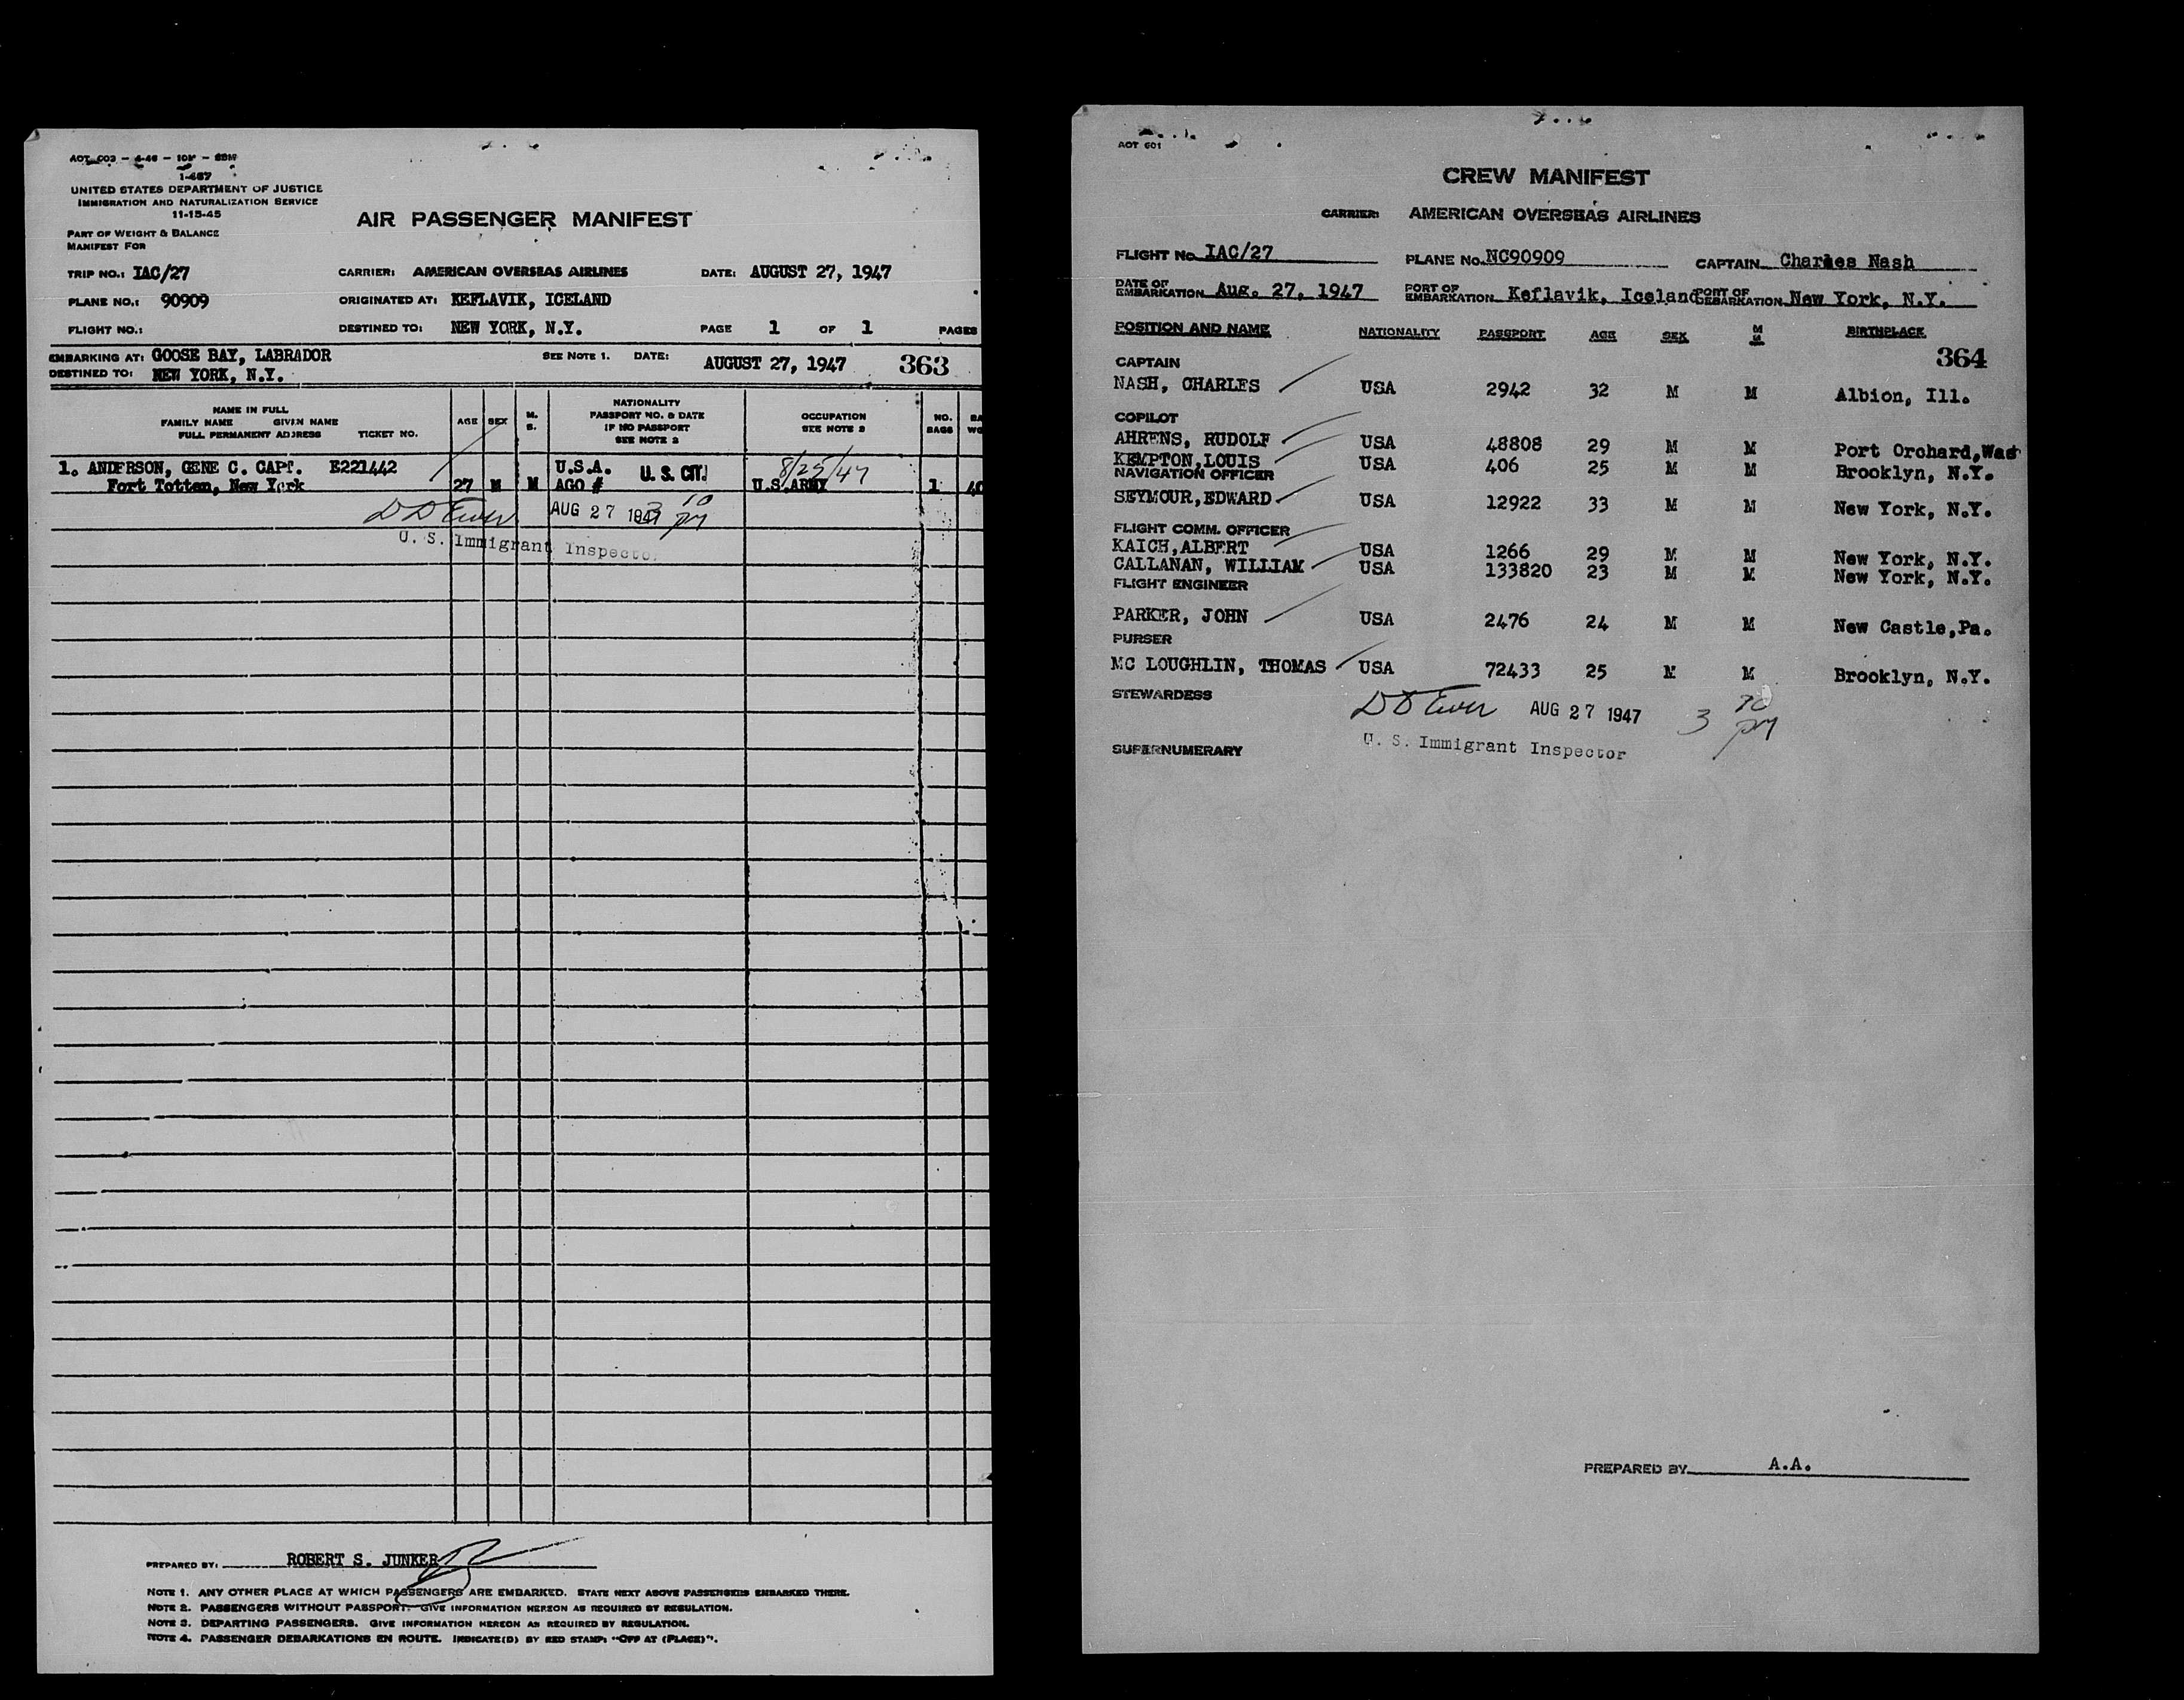 AOT 003 - 4-46 - 10M - SBM
1-467
UNITED STATES DEPARTMENT OF JUSTICE
IMMIGRATION AND NATURALIZATION SERVICE
11-15-45
PART OF WEIGHT & BALANCE
MANIFEST FOR
AIR PASSENGER MANIFEST
TRIP NO.: IAC/27 CARRIER: AMERICAN OVERSEAS AIRLINES DATE: AUGUST 27, 1947
PLANE NO.: 90909 ORIGINATED AT: KEFLAVIK, ICELAND
FLIGHT NO.: DESTINED TO: NEW YORK, N.Y. PAGE 1 OF 1 PAGES
EMBARKING AT: GOOSE BAY, LABRADOR SEE NOTE 1. DATE: AUGUST 27, 1947 363
DESTINED TO: NEW YORK, N.Y.
NAME IN FULL
FAMILY NAME GIVEN NAME
FULL PERMANENT ADDRESS TICKET NO.
AGE SEX M. S.
NATIONALITY
PASSPORT NO. & DATE
IF NO PASSPORT
SEE NOTE 2
OCCUPATION
SEE NOTE 2
NO.
BAGS
1. ANDERSON, GENE C. CAPT. E221442 U.S.A. U. S. CIT. 8/25/47
Fort Totten, New York 27 M M AGO # U.S.ARMY 1 40
AUG 27 1947 3 10 pm
U. S. Immigrant Inspector
PREPARED BY: ROBERT S. JUNKER
NOTE 1. ANY OTHER PLACE AT WHICH PASSENGERS ARE EMBARKED. STATE NEXT ABOVE PASSENGERS EMBARKED THERE.
NOTE 2. PASSENGERS WITHOUT PASSPORT. GIVE INFORMATION HEREON AS REQUIRED BY REGULATION.
NOTE 3. DEPARTING PASSENGERS. GIVE INFORMATION HEREON AS REQUIRED BY REGULATION.
NOTE 4. PASSENGER DEBARKATIONS EN ROUTE. INDICATE(D) BY RED STAMP: "OFF AT (PLACE)".
AOT 601
CREW MANIFEST
CARRIER: AMERICAN OVERSEAS AIRLINES
FLIGHT No. IAC/27 PLANE No. NC90909 CAPTAIN Charles Nash
DATE OF EMBARKATION Aug. 27, 1947 PORT OF EMBARKATION Keflavik, Iceland PORT OF DEBARKATION New York, N.Y.
POSITION AND NAME NATIONALITY PASSPORT AGE SEX M M BIRTHPLACE
364
CAPTAIN
NASH, CHARLES USA 2942 32 M M Albion, Ill.
COPILOT
AHRENS, RUDOLF USA 48808 29 M M Port Orchard,Was
KEMPTON,LOUIS USA 406 25 M M Brooklyn, N.Y.
NAVIGATION OFFICER
SEYMOUR,EDWARD USA 12922 33 M M New York, N.Y.
FLIGHT COMM. OFFICER
KAICH,ALBERT USA 1266 29 M M New York, N.Y.
CALLANAN, WILLIAM USA 133820 23 M M New York, N.Y.
FLIGHT ENGINEER
PARKER, JOHN USA 2476 24 M M New Castle,Pa.
PURSER
MC LOUGHLIN, THOMAS USA 72433 25 M M Brooklyn, N.Y.
STEWARDESS
AUG 27 1947 3 10 pm
U. S. Immigrant Inspector
SUPERNUMERARY
PREPARED BY A.A.